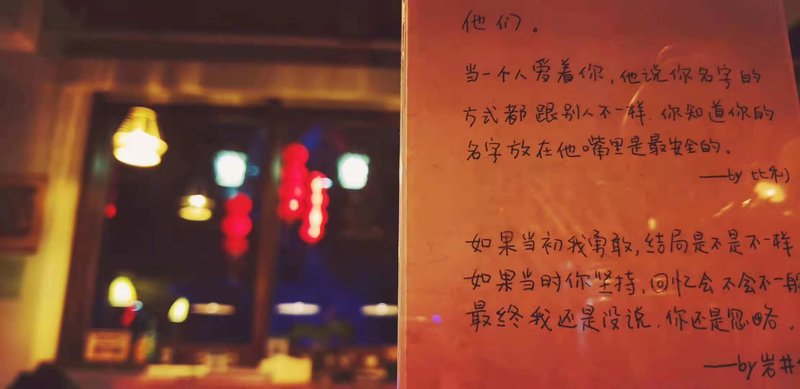 他们。
当一个人爱着你，他说你名字的
方式都跟别人不一样.你知道你的
名字放在他嘴里是最安全的.
——by 比利
如果当初我勇敢,结局是不是不一样
如果当时你坚持,回忆会不会不一般
最终我还是没说.你还是忽略.
——by 岩井